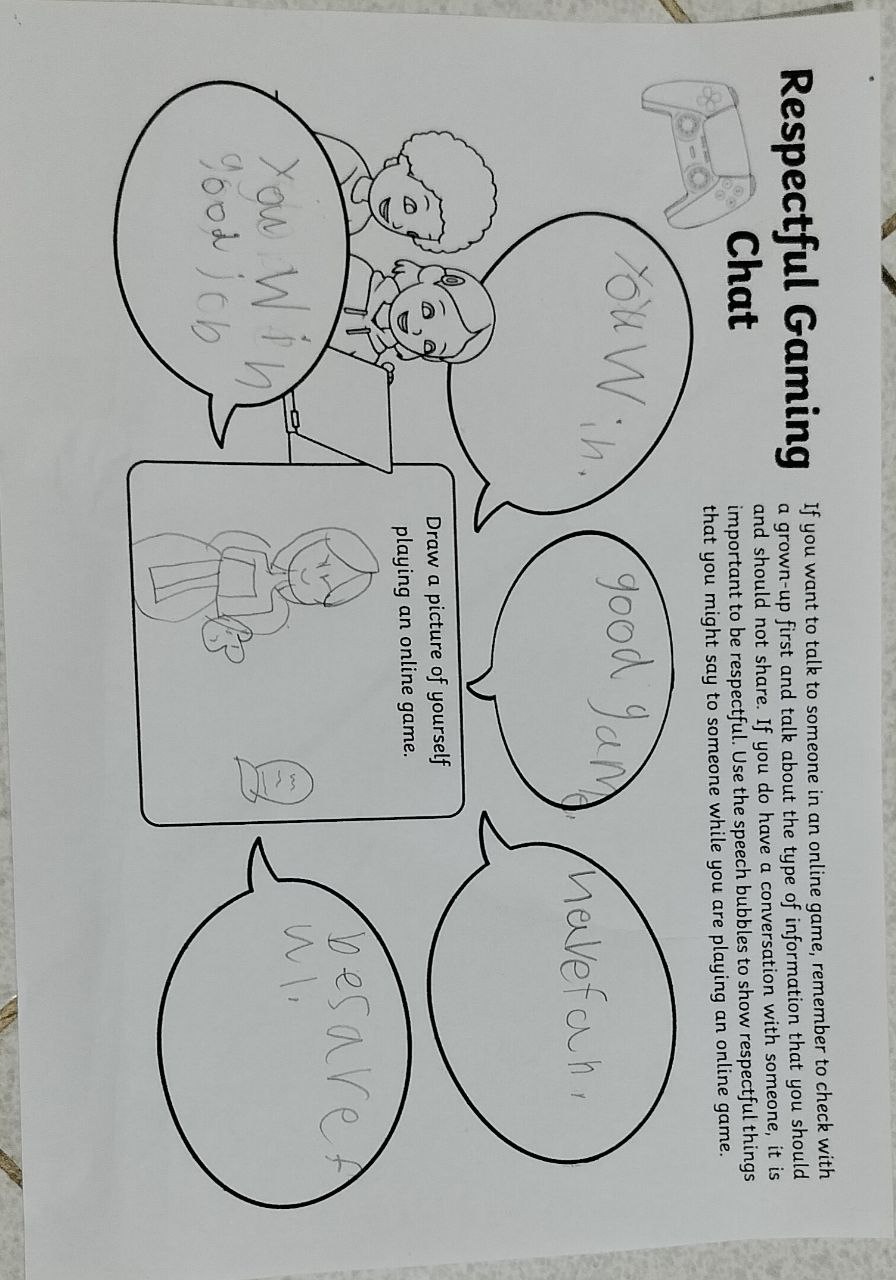 Respectful Gaming
Chat
If you want to talk to someone in an online game, remember to check with
a grown-up first and talk about the type of information that you should
and should not share. If you do have a conversation with someone, it is
important to be respectful. Use the speech bubbles to show respectful things
that you might say to someone while you are playing an online game.
You Wih.
good game.
havefuh.
You Wih
good job
Draw a picture of yourself
playing an online game.
besaref
ul.